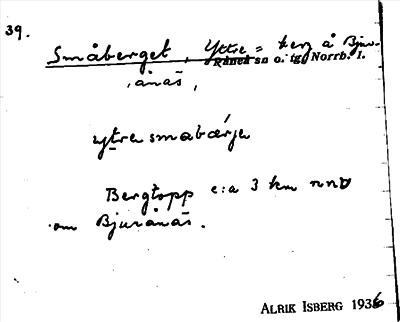 39.
Småberget, Yttre = berg å Bjur-
Råneå sn o. tg Norrb. l.
ånäs,
ytre smabærje
Bergtopp c:a 3 km nnv
om Bjurånäs.
ALRIK ISBERG 1936